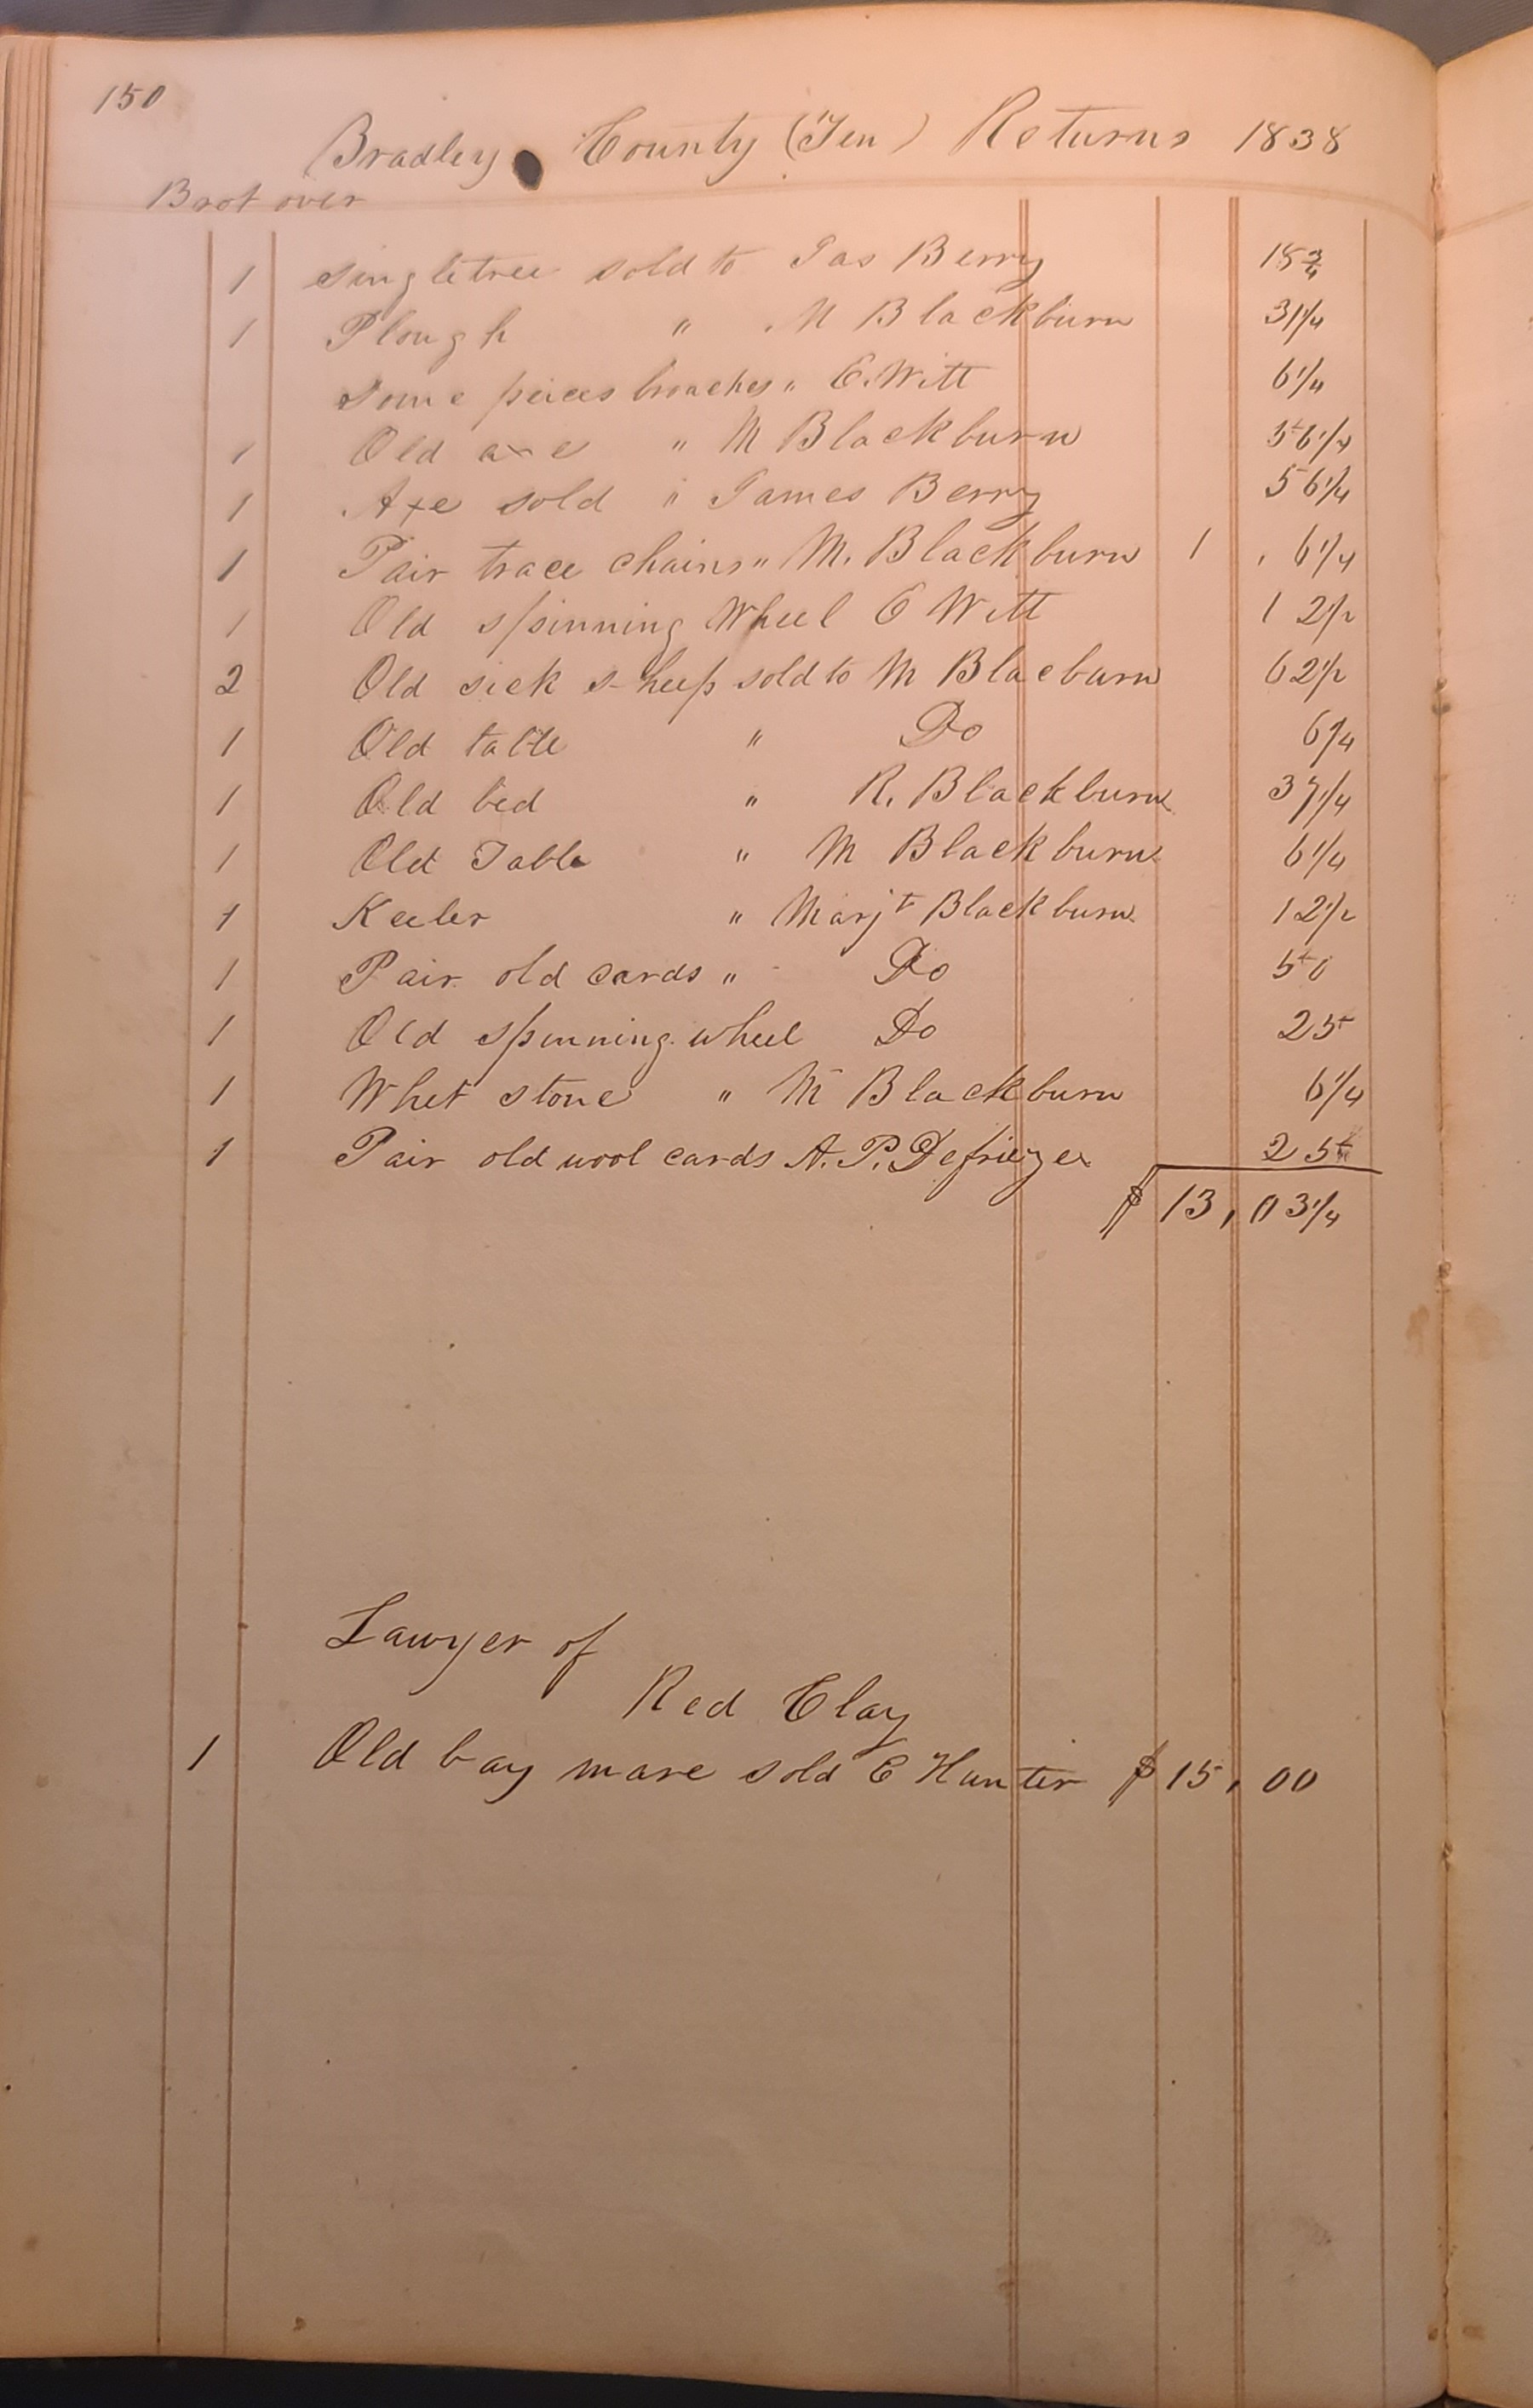 150
Bradley County (Ten) Returns 1838
Brot over
1 Singletree sold to Jas Berry 18 3/4
1 Plough " M Blackburn 31 1/4
Some peices broaches " E. Witt 6 1/4
1 Old axe " M Blackburn 56 1/4
1 Axe sold " James Berry 56 1/4
1 Pair trace chains " M. Blackburn 1 , 6 1/4
1 Old spinning Wheel E Witt 12 1/2
2 Old sick sheep sold to M Blacburn 62 1/2
1 Old table " Do 6 1/4
1 Old bed " R. Blackburn 37 1/4
1 Old Table " M Blackburn 6 1/4
1 Keeler " Marjt Blackburn 12 1/2
1 Pair old cards " Do 50
1 Old spinning wheel Do 25
1 Whet stone " M Blackburn 6 1/4
1 Pair old wool cards A. P. 25
$ 13, 03 1/4
Lawyer of
Red Clay
1 Old bay mare sold E Hunter $ 15, 00